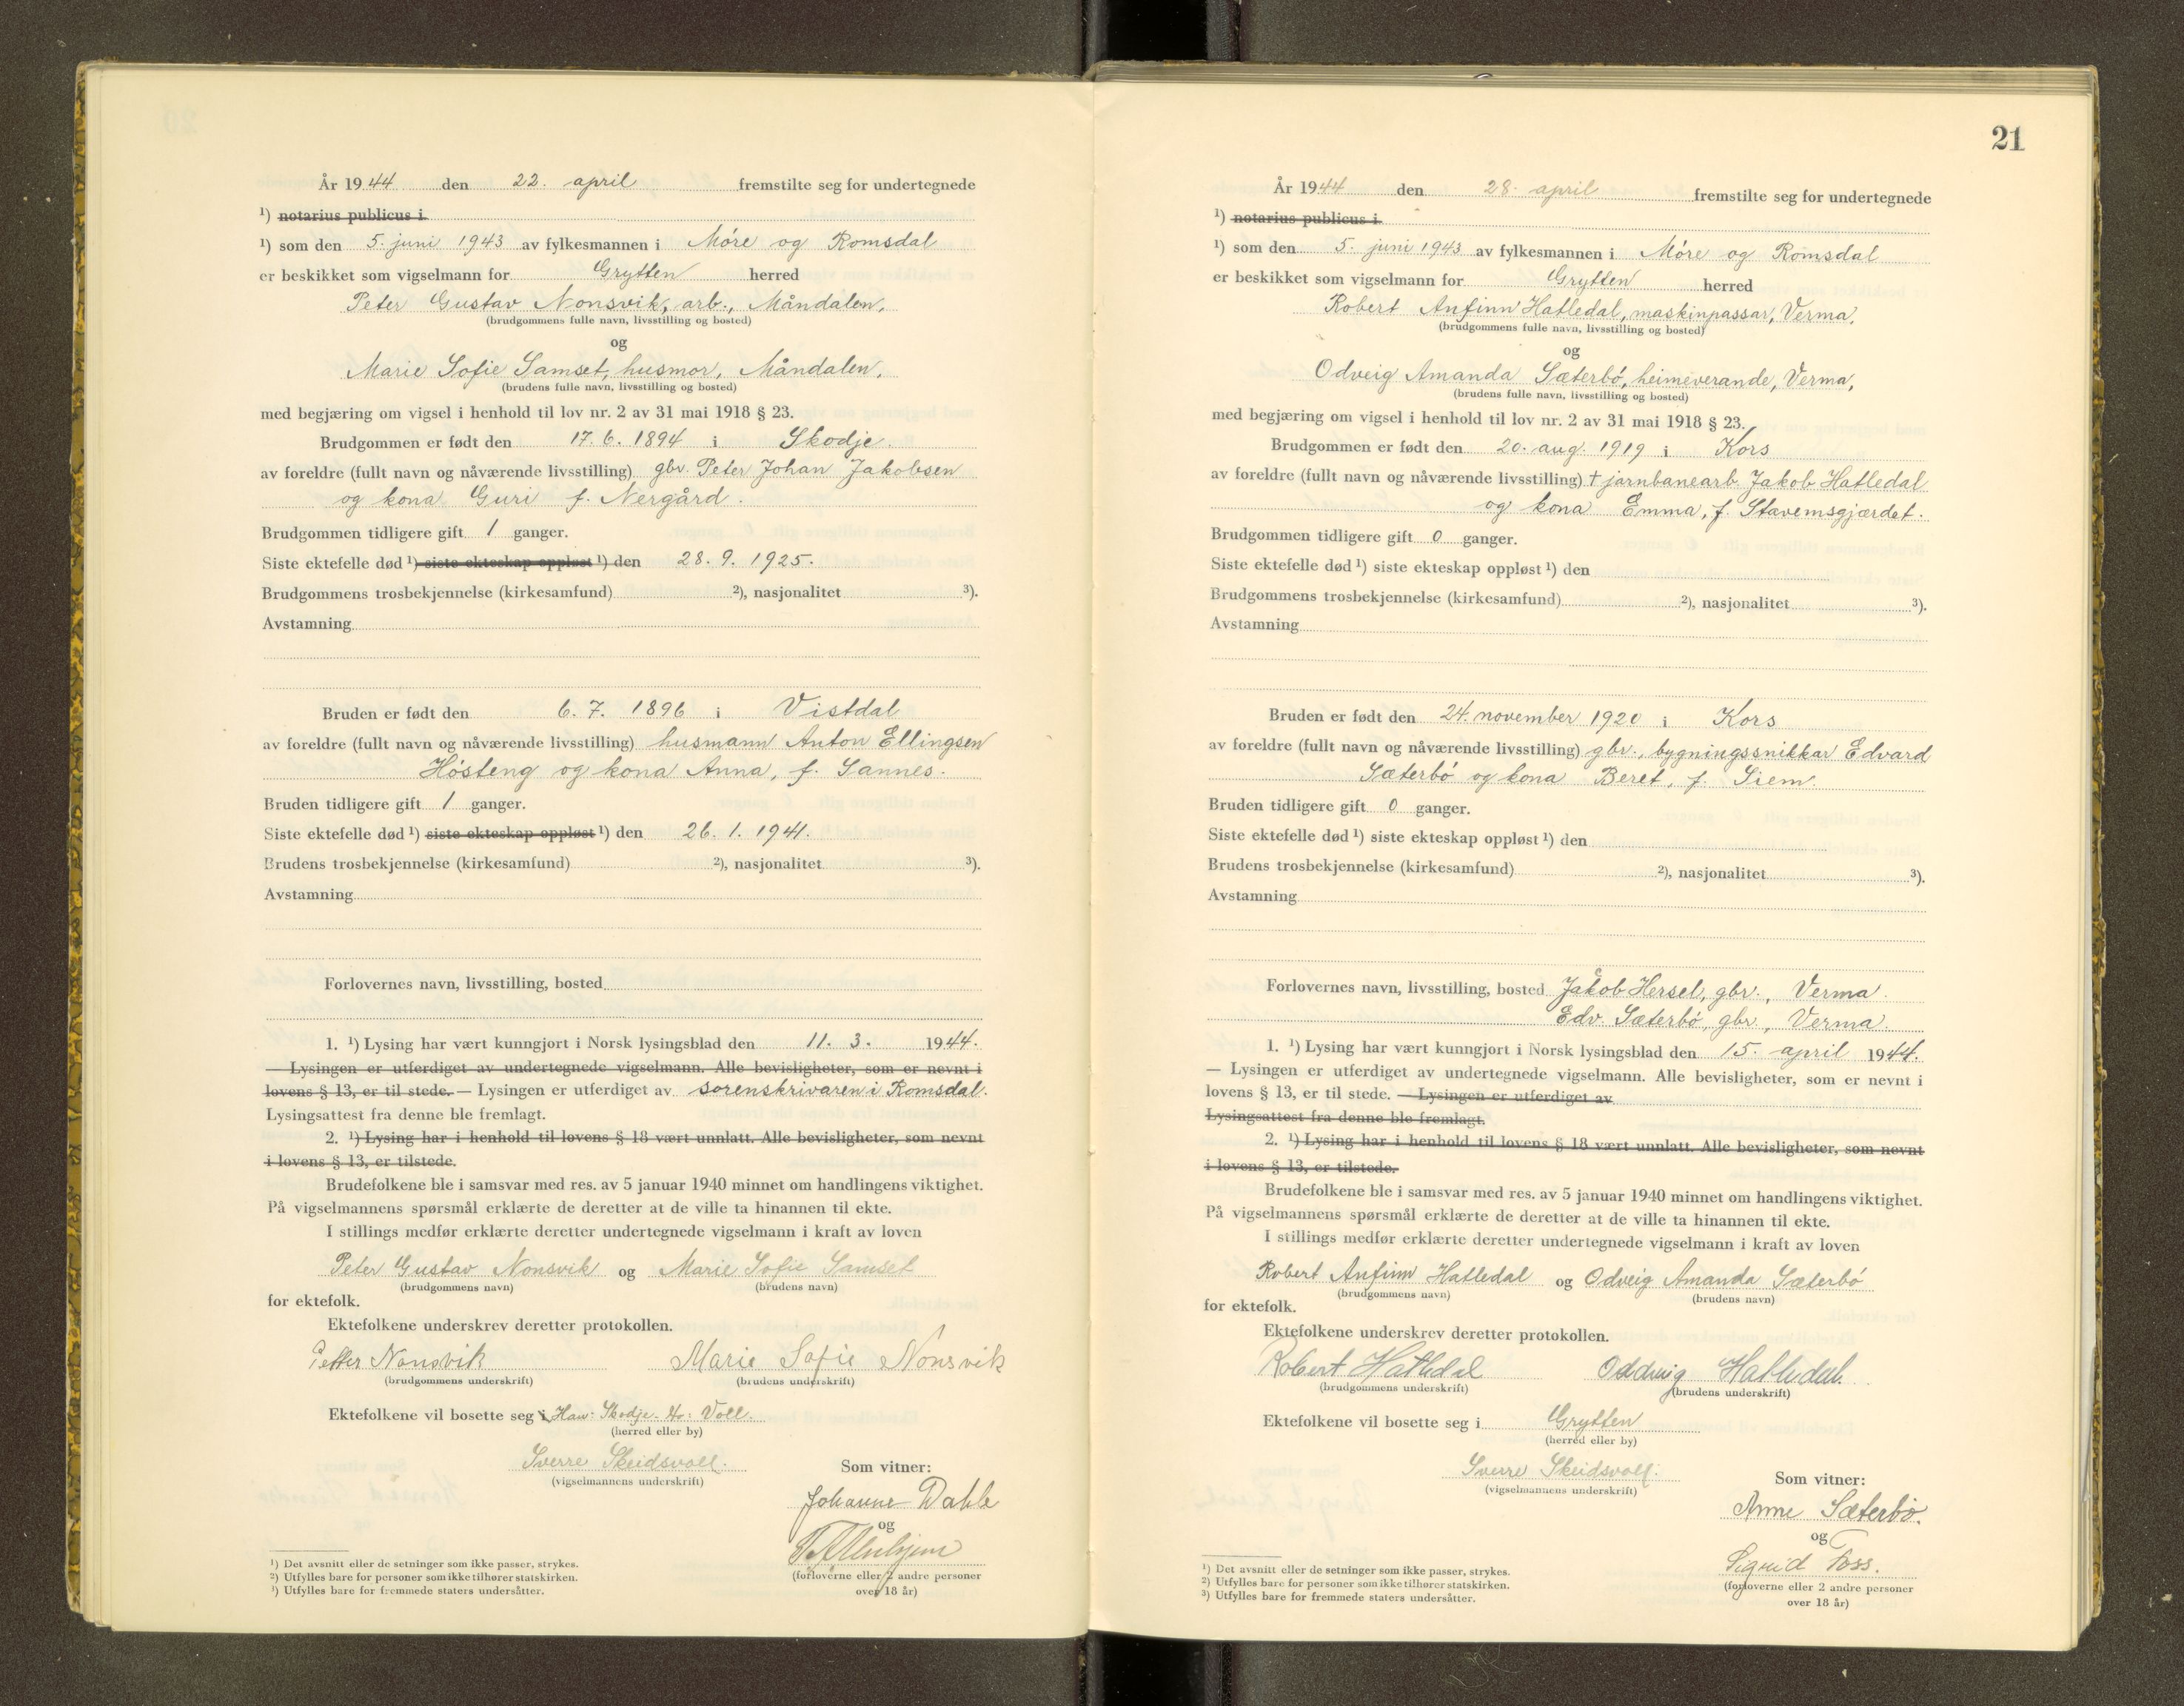 År 1944 den 22. april fremstilte seg for undertegnede
¹) notarius publicus i
¹) som den 5. juni 1943 av fylkesmannen i Møre og Romsdal
er beskikket som vigselmann for Grytten herred
Peter Gustav Nonsvik, arb., Måndalen,
(brudgommens fulle navn, livsstilling og bosted)
og
Marie Sofie Samset, husmor, Måndalen,
(brudens fulle navn, livsstilling og bosted)
med begjæring om vigsel i henhold til lov nr. 2 av 31 mai 1918 § 23.
Brudgommen er født den 17. 6. 1894 i Skodje.
av foreldre (fullt navn og nåværende livsstilling) gbr. Peter Johan Jakobsen
og kona Guri f. Nergård.
Brudgommen tidligere gift 1 ganger.
Siste ektefelle død ¹) siste ekteskap oppløst ¹) den 28. 9. 1925.
Brudgommens trosbekjennelse (kirkesamfund) ²), nasjonalitet ³).
Avstamning
Bruden er født den 6. 7. 1896 i Vistdal
av foreldre (fullt navn og nåværende livsstilling) husmann Anton Ellingsen
Høsteng og kona Anna, f. Sannes.
Bruden tidligere gift 1 ganger.
Siste ektefelle død ¹) siste ekteskap oppløst ¹) den 26. 1. 1941.
Brudens trosbekjennelse (kirkesamfund) ²), nasjonalitet ³).
Avstamning
Forlovernes navn, livsstilling, bosted
1. ¹) Lysing har vært kunngjort i Norsk lysingsblad den 11. 3. 1944.
— Lysingen er utferdiget av undertegnede vigselmann. Alle bevisligheter, som er nevnt i
lovens § 13, er til stede. — Lysingen er utferdiget av sorenskrivaren i Romsdal.
Lysingsattest fra denne ble fremlagt.
2. ¹) Lysing har i henhold til lovens § 18 vært unnlatt. Alle bevisligheter, som nevnt
i lovens § 13, er tilstede.
Brudefolkene ble i samsvar med res. av 5 januar 1940 minnet om handlingens viktighet.
På vigselmannens spørsmål erklærte de deretter at de ville ta hinannen til ekte.
I stillings medfør erklærte deretter undertegnede vigselmann i kraft av loven
Peter Gustav Nonsvik og Marie Sofie Samset
(brudgommens navn) (brudens navn)
for ektefolk.
Ektefolkene underskrev deretter protokollen.
Petter Nonsvik Marie Sofie Nonsvik
(brudgommens underskrift) (brudens underskrift)
Ektefolkene vil bosette seg i Han: Skodje. Ho: Voll.
(herred eller by)
Sverre Skeidsvoll.
(vigselmannens underskrift)
Som vitner:
Johanne Dahle
og
(forloverne eller 2 andre personer
over 18 år)
¹) Det avsnitt eller de setninger som ikke passer, strykes.
²) Utfylles bare for personer som ikke tilhører statskirken.
³) Utfylles bare for fremmede staters undersåtter.
21
År 1944 den 28. april fremstilte seg for undertegnede
¹) notarius publicus i
¹) som den 5. juni 1943 av fylkesmannen i Møre og Romsdal
er beskikket som vigselmann for Grytten herred
Robert Anfinn Hatledal, maskinpassar, Verma,
(brudgommens fulle navn, livsstilling og bosted)
og
Odveig Amanda Sæterbø, heimeverande, Verma,
(brudens fulle navn, livsstilling og bosted)
med begjæring om vigsel i henhold til lov nr. 2 av 31 mai 1918 § 23.
Brudgommen er født den 20. aug. 1919 i Kors
av foreldre (fullt navn og nåværende livsstilling) † jarnbanearb. Jakob Hatledal
og kona Emma, f. Stavemsgjærdet.
Brudgommen tidligere gift 0 ganger.
Siste ektefelle død ¹) siste ekteskap oppløst ¹) den
Brudgommens trosbekjennelse (kirkesamfund) ²), nasjonalitet ³).
Avstamning
Bruden er født den 24. november 1920 i Kors
av foreldre (fullt navn og nåværende livsstilling) gbr., bygningssnikkar Edvard
Sæterbø og kona Beret, f. Siem.
Bruden tidligere gift 0 ganger.
Siste ektefelle død ¹) siste ekteskap oppløst ¹) den
Brudens trosbekjennelse (kirkesamfund) ²), nasjonalitet ³).
Avstamning
Forlovernes navn, livsstilling, bosted Jakob Hersel, gbr., Verma.
Edv. Sæterbø, gbr., Verma.
1. ¹) Lysing har vært kunngjort i Norsk lysingsblad den 15. april 1944.
— Lysingen er utferdiget av undertegnede vigselmann. Alle bevisligheter, som er nevnt i
lovens § 13, er til stede. — Lysingen er utferdiget av
Lysingsattest fra denne ble fremlagt.
2. ¹) Lysing har i henhold til lovens § 18 vært unnlatt. Alle bevisligheter, som nevnt
i lovens § 13, er tilstede.
Brudefolkene ble i samsvar med res. av 5 januar 1940 minnet om handlingens viktighet.
På vigselmannens spørsmål erklærte de deretter at de ville ta hinannen til ekte.
I stillings medfør erklærte deretter undertegnede vigselmann i kraft av loven
Robert Anfinn Hatledal og Odveig Amanda Sæterbø
(brudgommens navn) (brudens navn)
for ektefolk.
Ektefolkene underskrev deretter protokollen.
Robert Hatledal Oddveig Hatledal.
(brudgommens underskrift) (brudens underskrift)
Ektefolkene vil bosette seg i Grytten
(herred eller by)
Sverre Skeidsvoll.
(vigselmannens underskrift)
Som vitner:
Anne Sæterbø.
og
Sigrid Foss.
(forloverne eller 2 andre personer
over 18 år)
¹) Det avsnitt eller de setninger som ikke passer, strykes.
²) Utfylles bare for personer som ikke tilhører statskirken.
³) Utfylles bare for fremmede staters undersåtter.